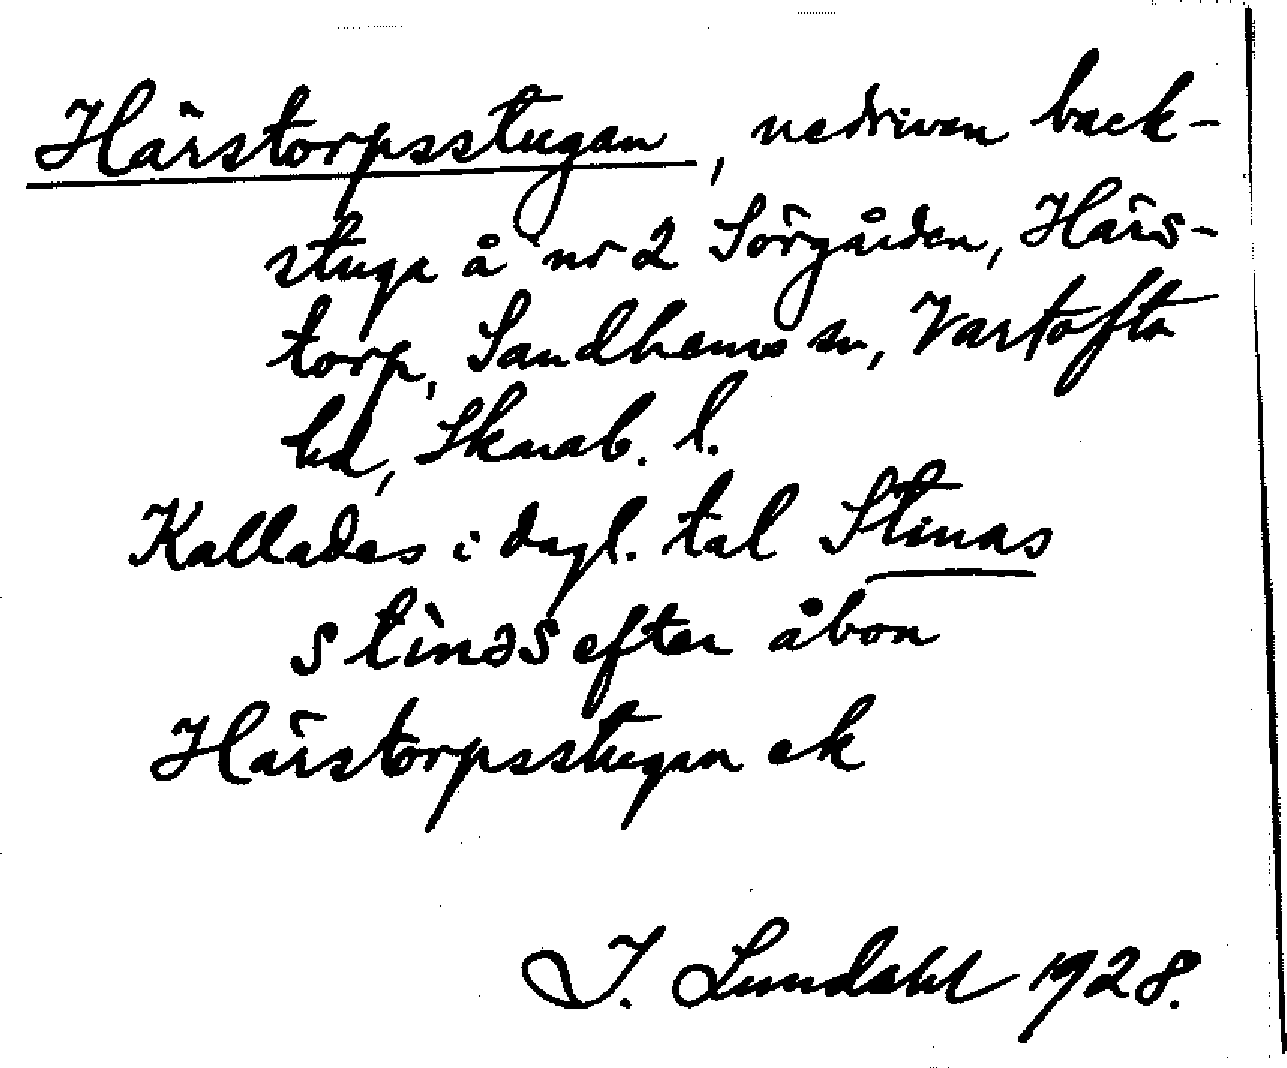 Härstorpsstugan, nedriven back-
stuga å nr 2 Sörgården, Härs-
torp, Sandhems sn, Vartofta
hd, Skarab. l.
Kallades i dagl. tal Stinas
stìnəs efter åbon
Härstorpsstugan ek
I. Lundahl 1928.